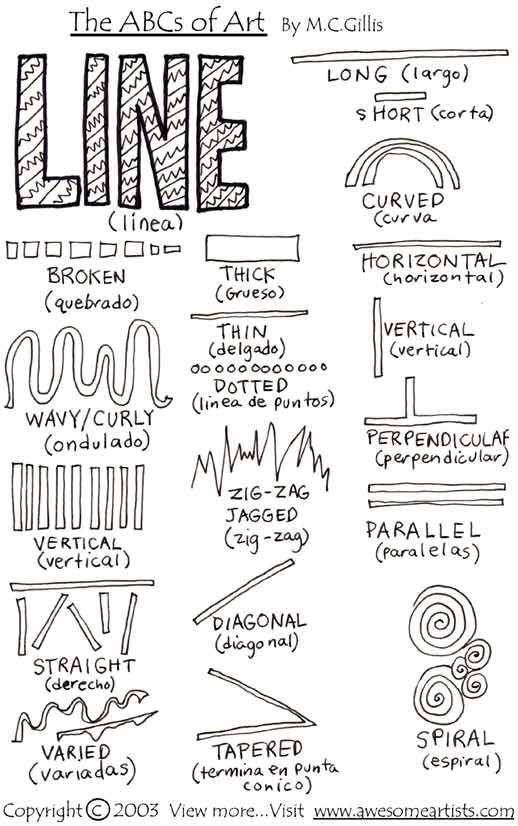 The ABCs of Art By M.C.Gillis
LINE
(línea)
LONG (largo)
SHORT (corta)
CURVED
(curva
BROKEN
(quebrado)
THICK
(Grueso)
HORIZONTAL
(horizontal)
THIN
(delgado)
VERTICAL
(vertical)
DOTTED
(línea de puntos)
WAVY/CURLY
(ondulado)
PERPENDICULAR
(perpendicular)
ZIG-ZAG
JAGGED
(zig-zag)
VERTICAL
(vertical)
PARALLEL
(paralelas)
DIAGONAL
(diagonal)
STRAIGHT
(derecho)
SPIRAL
(espiral)
VARIED
(variadas)
TAPERED
(termina en punta
conico)
Copyright © 2003 View more...Visit www.awesomeartists.com